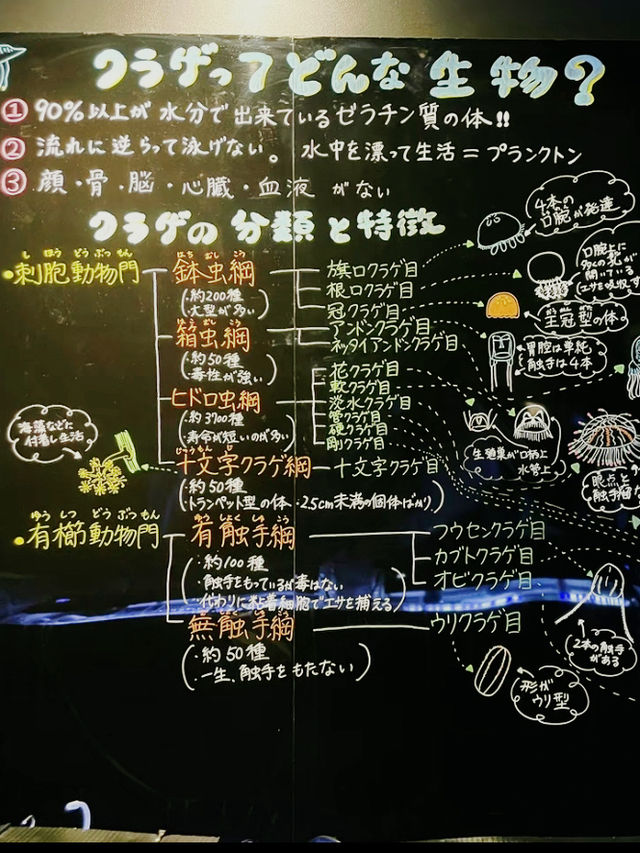 クラゲってどんな生物？
① 90%以上が水分で出来ているゼラチン質の体!!
② 流れに逆らって泳げない。水中を漂って生活＝プランクトン
③ 顔・骨・脳・心臓・血液 がない
クラゲの分類と特徴
しほうどうぶつもん
・刺胞動物門
はちむしこう
鉢虫綱
(・約200種
・大型が多い)
旗口クラゲ目
根口クラゲ目
冠クラゲ目
4本の
口腕が発達
口腕上に
多くの孔が
開いている
エサを吸収す
王冠型の体
はこむしこう
箱虫綱
(・約50種
・毒性が強い)
アンドンクラゲ目
ネッタイアンドンクラゲ目
胃腔は単純
触手は4本
ヒドロ虫綱
(・約3700種
・寿命が短いのが多い)
花クラゲ目
軟クラゲ目
淡水クラゲ目
管クラゲ目
硬クラゲ目
剛クラゲ目
生殖巣が口柄上
水管上
眼点と
触手瘤
海藻などに
付着し生活
じゅうもんじ こう
十文字クラゲ綱
(・約50種
・トランペット型の体・2.5cm未満の個体ばかり)
十文字クラゲ目
ゆうしつどうぶつもん
・有櫛動物門
ゆうしょくしゅこう
有触手綱
(・約100種
・触手をもっているが毒はない
・代わりに粘着細胞でエサを捕える)
フウセンクラゲ目
カブトクラゲ目
オビクラゲ目
2本の触手
がある
むしょくしゅこう
無触手綱
(・約50種
・一生、触手をもたない)
ウリクラゲ目
形が
ウリ型